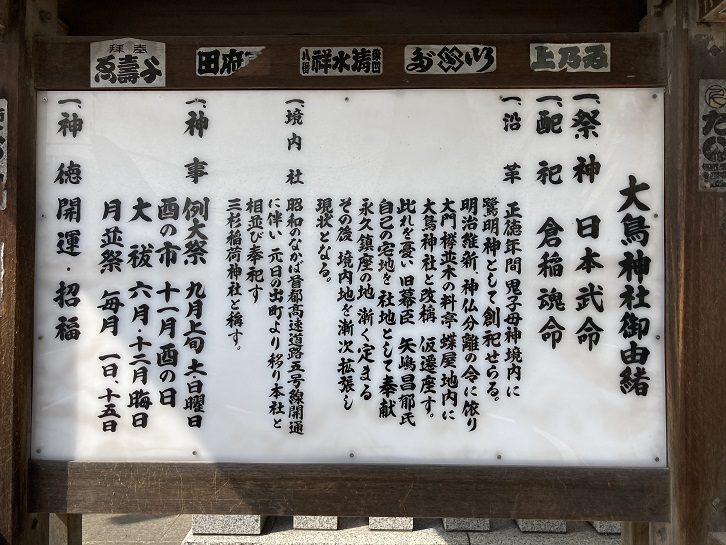 大鳥神社御由緒
一、祭神 日本武命
一、配祀 倉稲魂命
一、沿革 正徳年間 鬼子母神境内に
鷲明神として創祀せらる。
明治維新、神仏分離の令に依り
大門欅並木の料亭・蝶屋地内に
大鳥神社と改稱 仮遷座す。
此れを憂い旧幕臣 矢嶋昌郁氏
自己の宅地を社地として奉献
永久鎮座の地 漸く定まる
その後 境内地を漸次拡張し
現状となる。
一、境内社 昭和のなかば首都高速道路五号線開通
に伴い 元日の出町より移り本社と
相並び奉祀す
三杉稲荷神社と稱す。
一、神事 例大祭 九月上旬 土日曜日
酉の市 十一月酉の日
大祓 六月・十二月晦日
月並祭 毎月 一日、十五日
一、神徳 開運・招福
上乃る
清水祥
田府